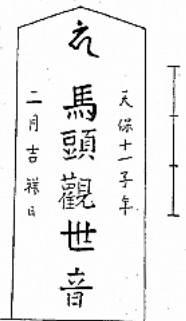 天保十一子年
馬頭觀世音
二月吉祥日